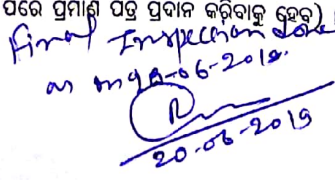 ପରେ ପ୍ରମାଣ ପତ୍ର ପ୍ରଦାନ କରିବାକୁ ହେବ)
Final Inspection
on 06-2019.
20-06-2019